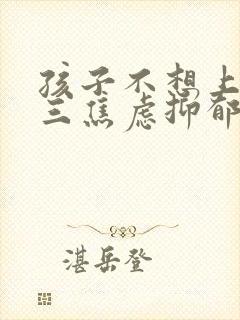 孩子不想上
三焦虑抑郁
湛岳登